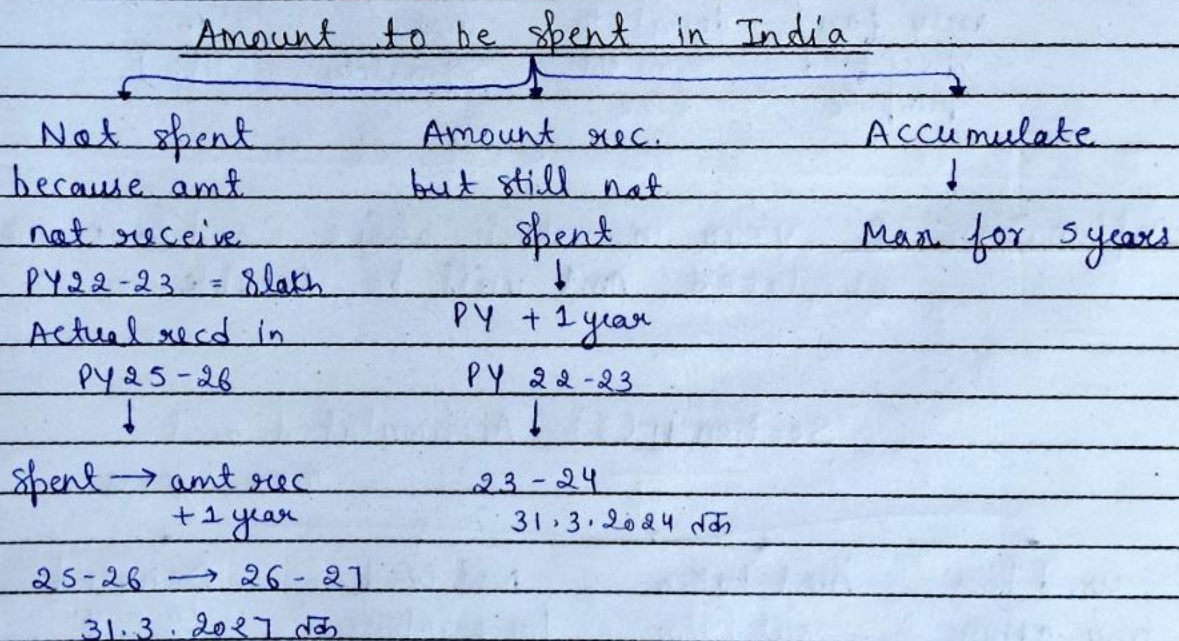 Amount to be spent in India
Not spent
because amt
not receive
PY22-23 = 8lakh
Actual recd in
PY25-26
↓
spent → amt rec
+ 1 year
25-26 → 26-27
31.3.2027 तक
Amount rec.
but still not
spent
↓
PY + 1 year
PY 22-23
↓
23-24
31.3.2024 तक
Accumulate
↓
Max for 5 years
Section